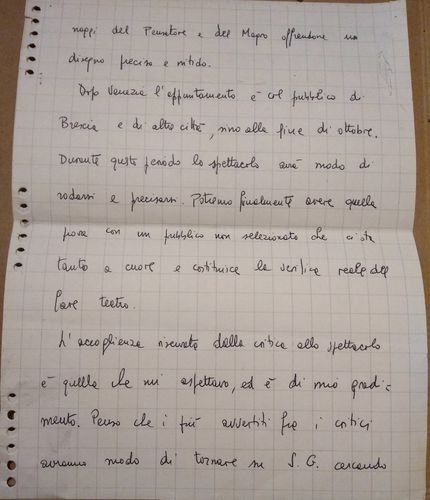 noppi del Pensatore e del Magro offrendone un
disegno preciso e nitido.
Dopo Venezia l'appuntamento è col pubblico di
Brescia e di altre città, sino alla fine di ottobre.
Durante questo periodo lo spettacolo avrà modo di
rodarsi e precisarsi. Potremo finalmente avere quella
prova con un pubblico non selezionato che ci sta
tanto a cuore e costituisce la verifica reale del
fare teatro.
L'accoglienza riservata dalla critica allo spettacolo
è quella che mi aspettavo, ed è di mio gradi-
mento. Penso che i più avvertiti fra i critici
avranno modo di tornare su S. G. cercando